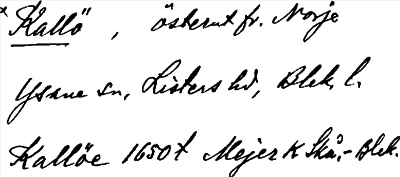 × Kallö, österut fr. Norje
Ysane sn, Listers hd, Blek. l.
Kallöe 1650t Mejer K Skå.-Blek.